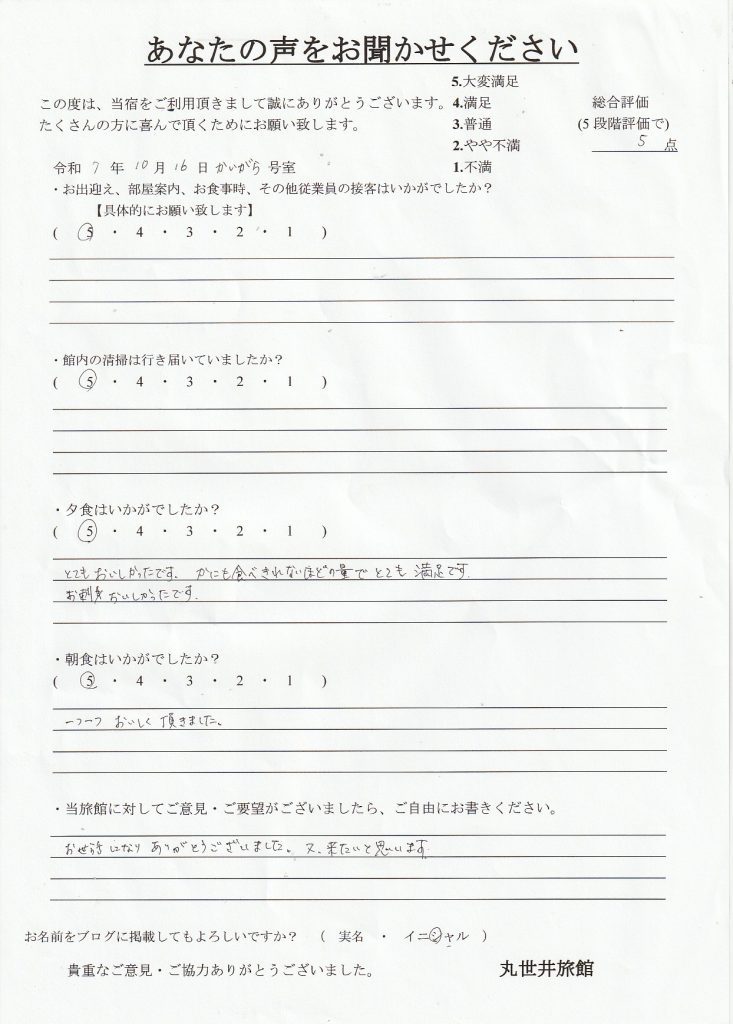 あなたの声をお聞かせください
この度は、当宿をご利用頂きまして誠にありがとうございます。
たくさんの方に喜んで頂くためにお願い致します。
5.大変満足
4.満足
3.普通
2.やや不満
1.不満
総合評価
(5段階評価で)
5 点
令和 7 年 10 月 16 日 かいがら 号室
・お出迎え、部屋案内、お食事時、その他従業員の接客はいかがでしたか？
【具体的にお願い致します】
( 5 ・ 4 ・ 3 ・ 2 ・ 1 )
・館内の清掃は行き届いていましたか？
( 5 ・ 4 ・ 3 ・ 2 ・ 1 )
・夕食はいかがでしたか？
( 5 ・ 4 ・ 3 ・ 2 ・ 1 )
とてもおいしかったです。かにも食べきれないほどの量でとても満足です。
お刺身おいしかったです。
・朝食はいかがでしたか？
( 5 ・ 4 ・ 3 ・ 2 ・ 1 )
一つ一つ おいしく頂きました。
・当旅館に対してご意見・ご要望がございましたら、ご自由にお書きください。
お世話になり ありがとうございました。又、来たいと思います。
お名前をブログに掲載してもよろしいですか？ ( 実名 ・ イニシャル )
貴重なご意見・ご協力ありがとうございました。
丸世井旅館